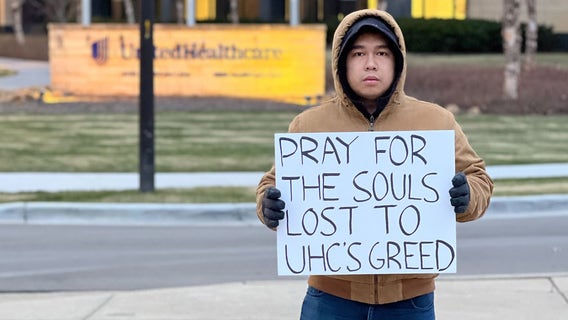 UnitedHealthcare
PRAY FOR
THE SOULS
LOST TO
UHC'S GREED